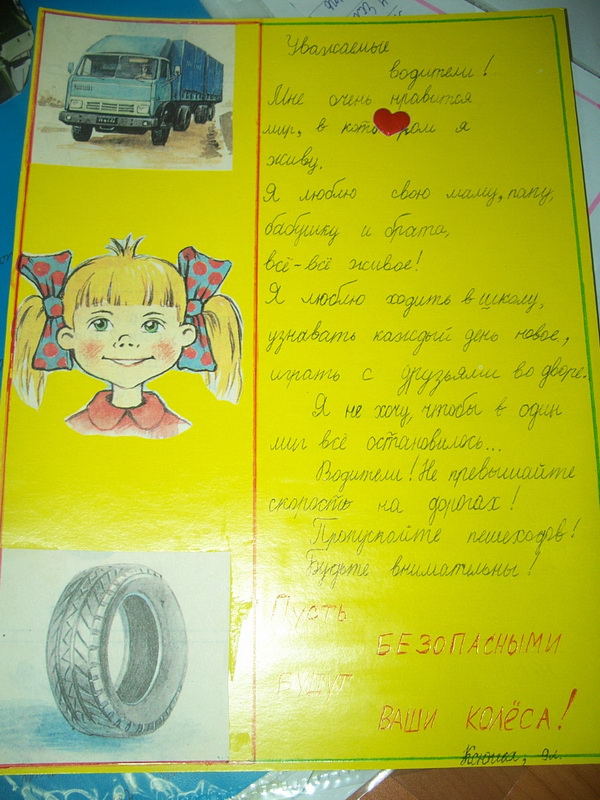 Уважаемые
водители!
Мне очень нравится
мир, в котором я
живу.
Я люблю свою маму, папу,
бабушку и брата,
всё-всё живое!
Я люблю ходить в школу,
узнавать каждый день новое,
играть с друзьями во дворе.
Я не хочу, чтобы в один
миг всё остановилось...
Водители! Не превышайте
скорость на дорогах!
Пропускайте пешеходов!
Будьте внимательны!
Пусть
БЕЗОПАСНЫМИ
БУДУТ
ВАШИ КОЛЁСА!